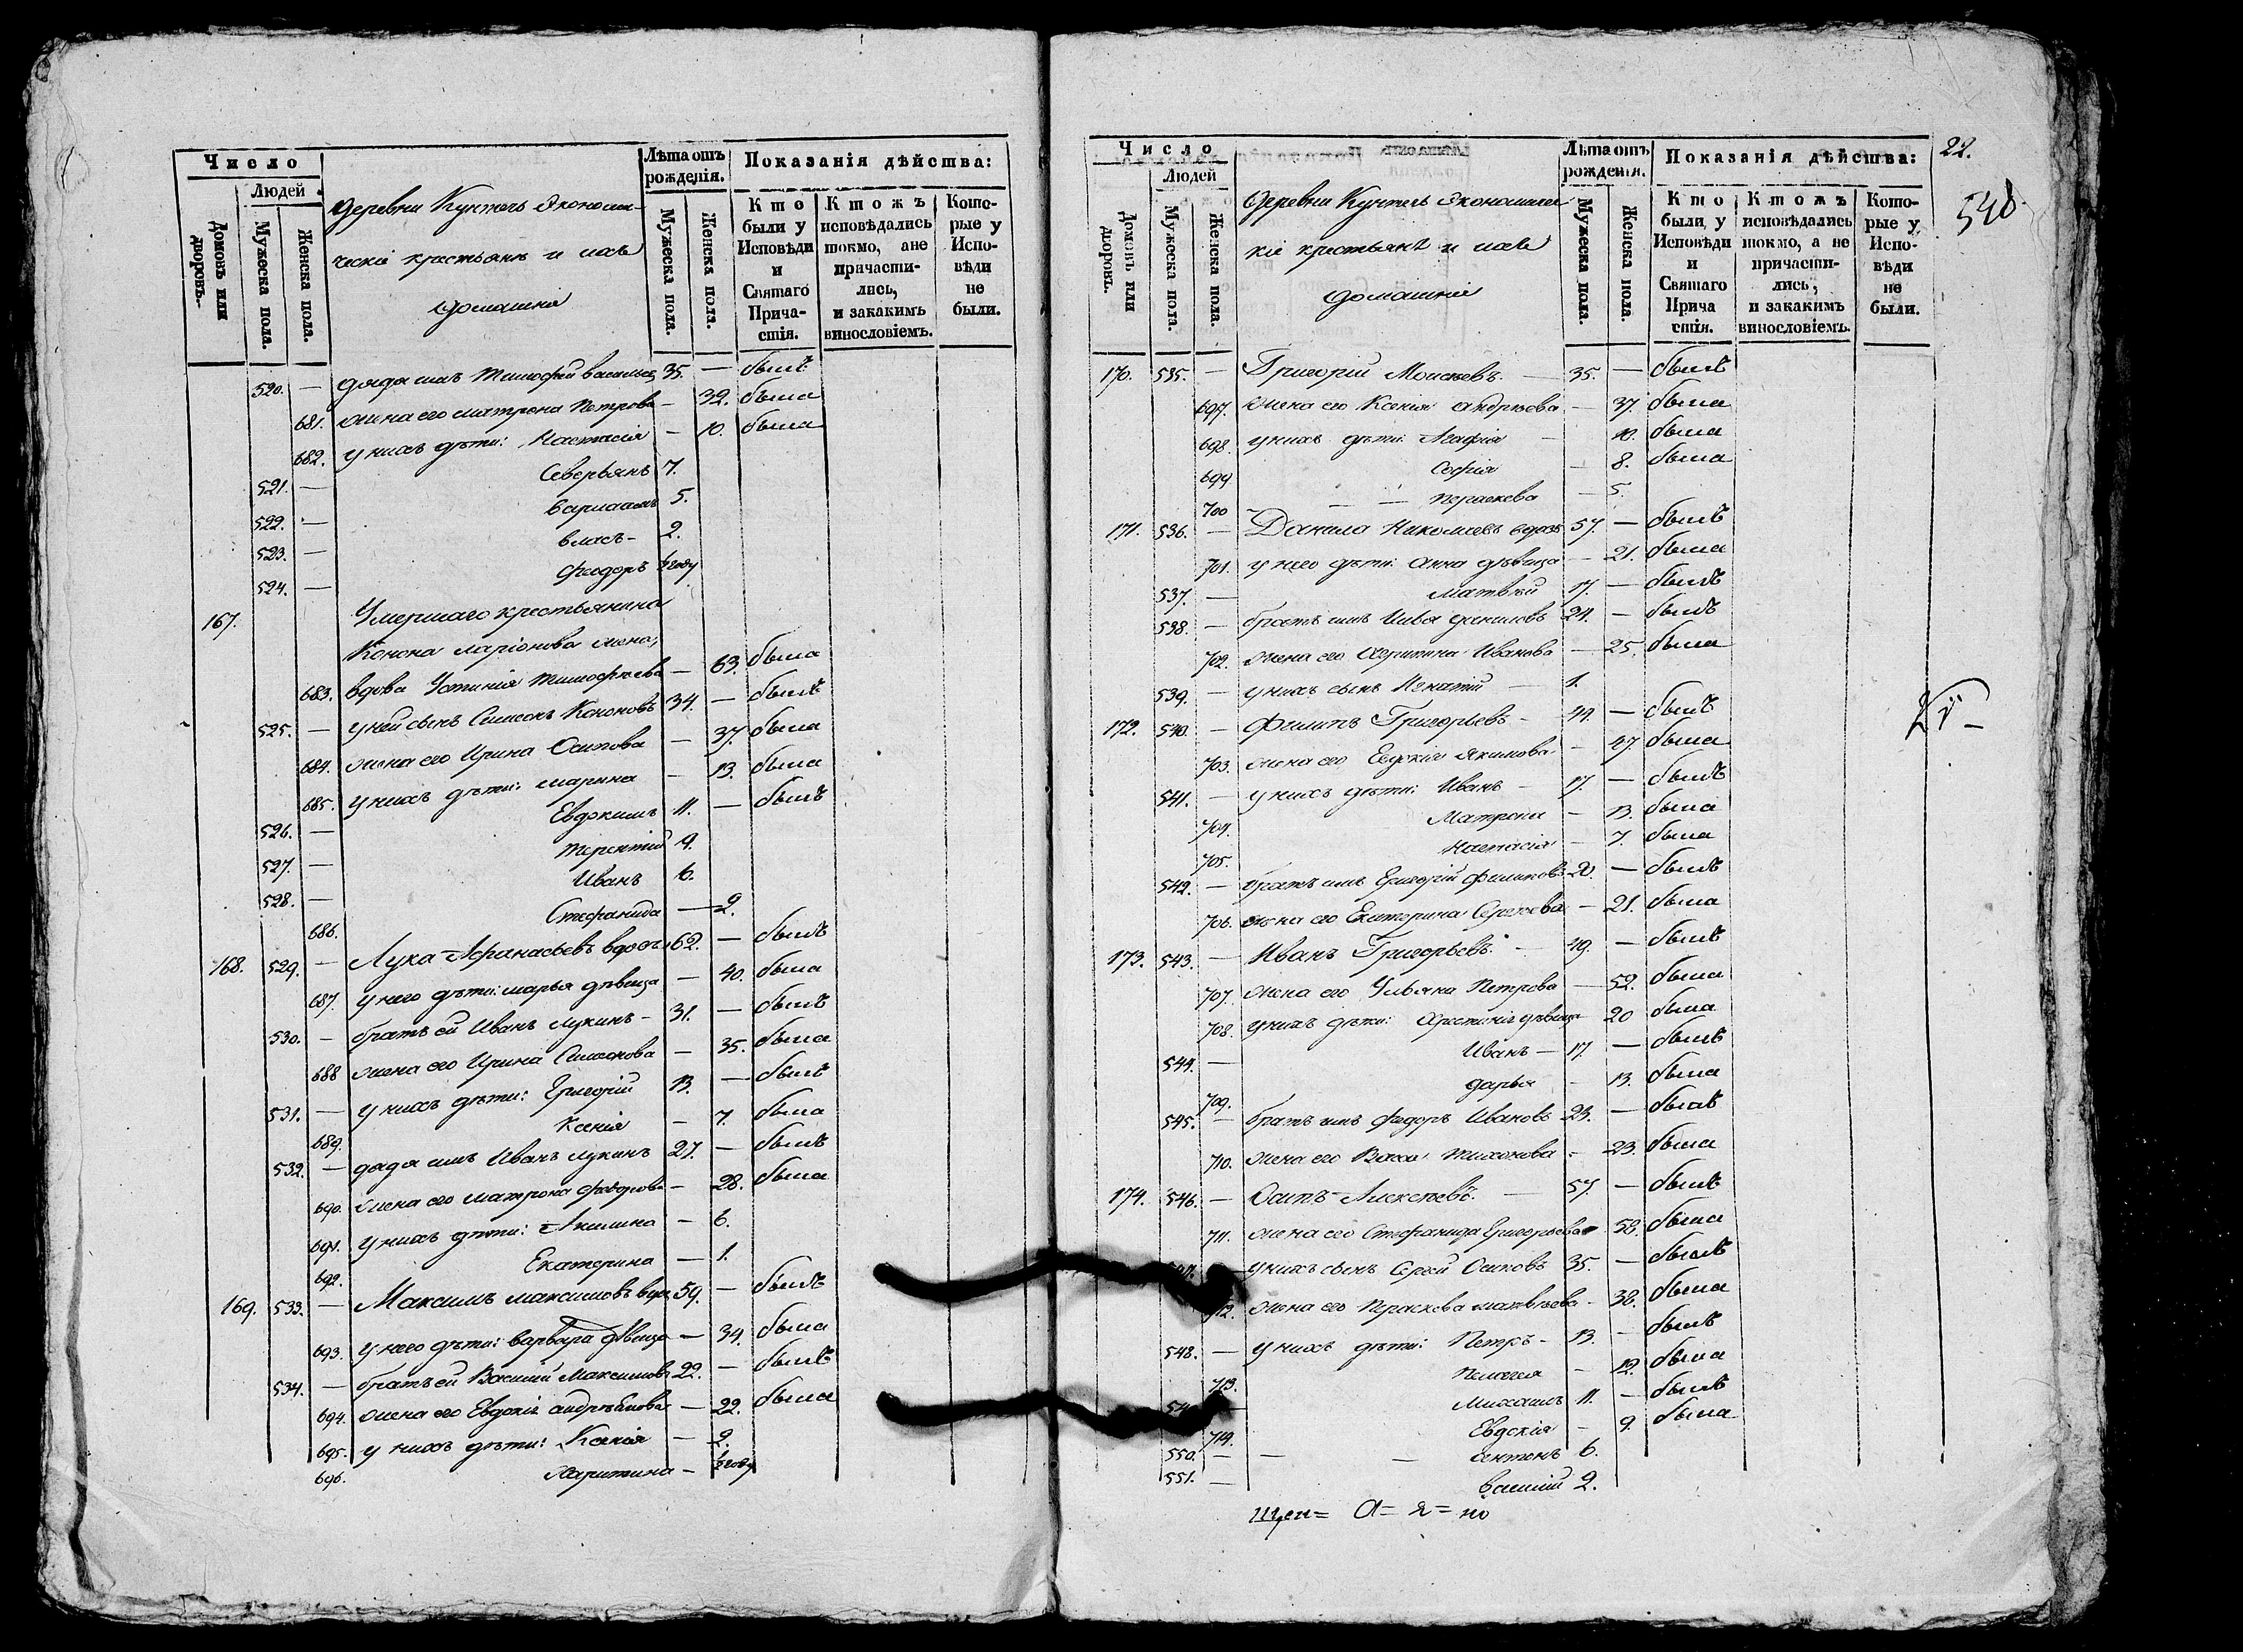 Число
Людей
Домовъ или дворовъ.
Мужеска пола.
Женска пола.
Деревни Кунтегъ Экономи-
ческіе крестьянѣ и ихъ
домашніе
Лѣта отъ рожденія.
Мужеска пола.
Женска пола.
Показанія дѣйства:
Кто были у Исповѣди и Святаго Прича-стія.
Ктожъ исповѣдались токмо, а не причасти-лись, и закакимъ винословіемъ.
Кото-рые у Испо-вѣди не были.
520. — дядя имъ Тимофей Васильевъ 35. — былъ
681. жена его Матрона Петрова — 32. была
682. у нихъ дѣти: Настасія — 10. была
521. — Северьянъ 7.
522. — Варлаамъ 5.
523. — Власъ — 2.
524. — Феодоръ ½ году
167. Умершаго крестьянина
Конона Ларіонова жена,
683. вдова Устинія Тимофѣева — 63. была
525. — у ней сынъ Симеонъ Кононовъ 34. — былъ
684. жена его Ирина Осипова — 37. была
685. у нихъ дѣти: Марина — 13. была
526. — Евдокимъ 11. — былъ
527. — Терентій 9.
528. — Иванъ 6.
686. Стефанида — 2.
168. 529. — Лука Афанасьевъ вдовъ 62. — былъ
687. у него дѣти: Марья дѣвица — 40. была
530. — братъ ей Иванъ Лукинъ — 31. — былъ
688 жена его Ирина Симеонова — 35. была
531. — у нихъ дѣти: Григорій 13. — былъ
689. Ксенія — 7. была
532. — дядя имъ Иванъ Лукинъ 27. — былъ
690. жена его Матрона Федорова — 28. была
691. у нихъ дѣти: Акилина — 6.
692. Екатерина — 1.
169. 533. — Максимъ Максимовъ вдов 59. — былъ
693. у него дѣти: Варвара дѣвица — 34. была
534. — братъ ей Василій Максимовъ 22. — былъ
694. жена его Евдокія — 22. была
695. у нихъ дѣти: Ксенія — 2.
696. Харитина — ½ году
Число
Людей
Домовъ или дворовъ.
Мужеска пола.
Женска пола.
Деревни Кунтегъ Экономичес-
кіе крестьянѣ и ихъ
домашніе
Лѣта отъ рожденія.
Мужеска пола.
Женска пола.
Показанія дѣйства:
Кто были у Исповѣди и Святаго Прича стія.
Ктожъ исповѣдались токмо, а не причасти-лись, и закакимъ винословіемъ.
Кото-рые у Испо-вѣди не были.
22.
540.
170. 535. — Григорій Моисѣевъ. — 35. — былъ
697. жена его Ксенія Андрѣева — 37. была
698. у нихъ дѣти: Агафія — 10. была
699 Софія — 8. была
700 — — Параскева — 5.
171. 536. — Данило Николаевъ вдовъ 57. — былъ
701. у него дѣти: Анна дѣвица — 21. была
537. — Матвѣй 17. — былъ
538. — братъ имъ Илья Даниловъ 24. — былъ
702. жена его Харитина Иванова — 25. была
539. — у нихъ сынъ Игнатій — 1.
172. 540. — Филипъ Григорьевъ — 49. — былъ
703. жена его Евдокія Якимова — 47. была
541. — у нихъ дѣти: Иванъ — 17. — былъ
704. Матрона — 13. была
705. Настасія — 7. была
542. — братъ имъ Григорій Филиповъ 20. — былъ
706. жена его Екатерина Сергѣева — 21. была
173. 543. — Иванъ Григорьевъ. — 49. — былъ
707. жена его Ульяна Петрова — 52. была
708. у нихъ дѣти: Христинія дѣвица — 20 была
544. — Иванъ — 17. — былъ
709. Дарья — 13. была
545. — братъ имъ Федоръ Ивановъ 23. — былъ
710. жена его Васса Тихонова — 23. была
174. 546. — Осипъ Алексѣевъ. — 57. — былъ
711. жена его Стефанида Григорьева — 58. была
547. — у нихъ сынъ Сергѣй Осиповъ 35. — былъ
712. жена его Параскева Матвѣева — 38. была
548. — у нихъ дѣти: Петръ — 13. — былъ
713. Пелагея — 12. была
549. — Михаилъ 11. — былъ
714. Евдокія — 9. была
550. — — — Антонъ 6.
551. — Василій 2.